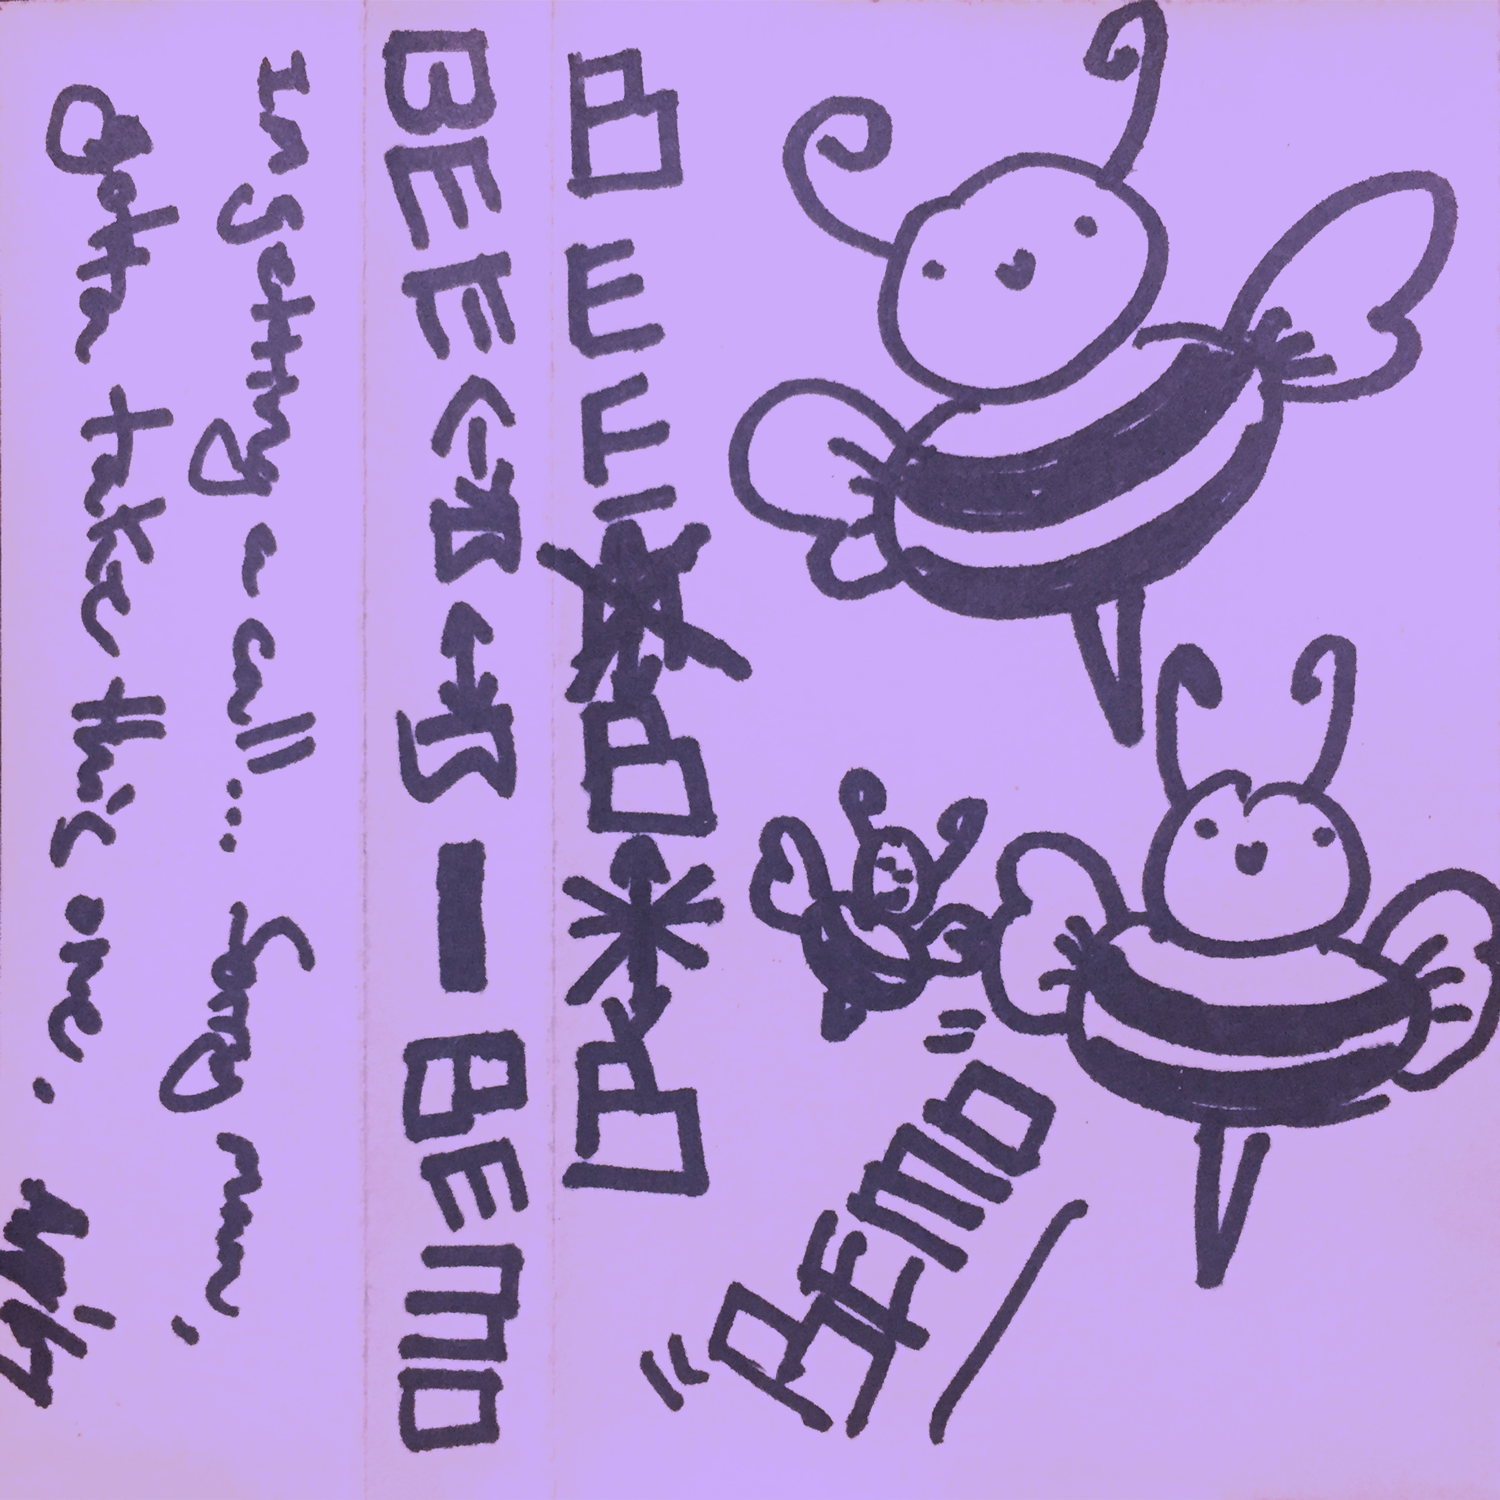 "BEMO"
BEE
BEE - BEMO
Im getting a call... Sorry mum,
gotta take this one.